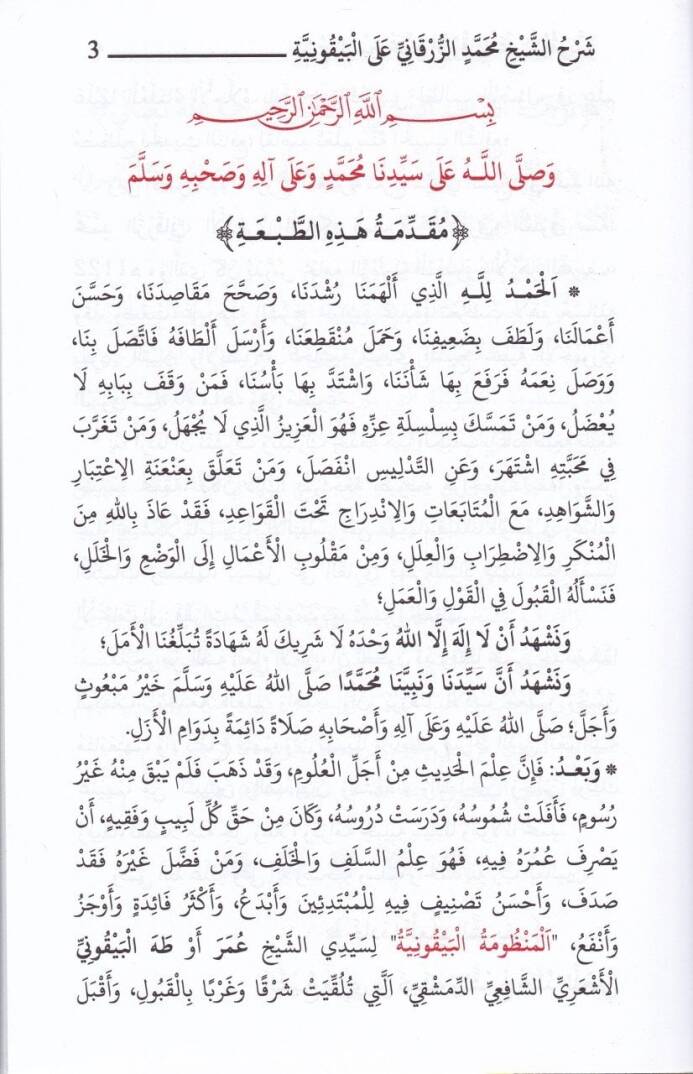 شَرْحُ الشَّيْخِ مُحَمَّدٍ الزُّرْقَانِيِّ عَلَى الْبَيْقُونِيَّةِ 3
بِسْمِ اللَّهِ الرَّحْمَنِ الرَّحِيمِ
وَصَلَّى اللَّهُ عَلَى سَيِّدِنَا مُحَمَّدٍ وَعَلَى آلِهِ وَصَحْبِهِ وَسَلَّمَ
﴿مُقَدِّمَةُ هَذِهِ الطَّبْعَةِ﴾
* اَلْحَمْدُ لِلَّهِ الَّذِي أَلْهَمَنَا رُشْدَنَا، وَصَحَّحَ مَقَاصِدَنَا، وَحَسَّنَ
أَعْمَالَنَا، وَلَطَفَ بِضَعِيفِنَا، وَحَمَلَ مُنْقَطِعَنَا، وَأَرْسَلَ أَلْطَافَهُ فَاتَّصَلَ بِنَا،
وَوَصَلَ نِعَمَهُ فَرَفَعَ بِهَا شَأْنَنَا، وَاشْتَدَّ بِهَا بَأْسُنَا، فَمَنْ وَقَفَ بِبَابِهِ لَا
يُعْضَلُ، وَمَنْ تَمَسَّكَ بِسِلْسِلَةِ عِزِّهِ فَهُوَ الْعَزِيزُ الَّذِي لَا يُجْهَلُ، وَمَنْ تَغَرَّبَ
فِي مَحَبَّتِهِ اشْتَهَرَ، وَعَنِ التَّدْلِيسِ انْفَصَلَ، وَمَنْ تَعَلَّقَ بِعَنْعَنَةِ الِاعْتِبَارِ
وَالشَّوَاهِدِ، مَعَ الْمُتَابَعَاتِ وَالِانْدِرَاجِ تَحْتَ الْقَوَاعِدِ، فَقَدْ عَاذَ بِاللهِ مِنَ
الْمُنْكَرِ وَالِاضْطِرَابِ وَالْعِلَلِ، وَمِنْ مَقْلُوبِ الْأَعْمَالِ إِلَى الْوَضْعِ وَالْخَلَلِ،
فَنَسْأَلُهُ الْقَبُولَ فِي الْقَوْلِ وَالْعَمَلِ؛
وَنَشْهَدُ أَنْ لَا إِلَهَ إِلَّا اللهُ وَحْدَهُ لَا شَرِيكَ لَهُ شَهَادَةً تُبَلِّغُنَا الْأَمَلَ؛
وَنَشْهَدُ أَنَّ سَيِّدَنَا وَنَبِيَّنَا مُحَمَّدًا صَلَّى اللهُ عَلَيْهِ وَسَلَّمَ خَيْرُ مَبْعُوثٍ
وَأَجَلُّ؛ صَلَّى اللهُ عَلَيْهِ وَعَلَى آلِهِ وَأَصْحَابِهِ صَلَاةً دَائِمَةً بِدَوَامِ الْأَزَلِ.
* وَبَعْدُ: فَإِنَّ عِلْمَ الْحَدِيثِ مِنْ أَجَلِّ الْعُلُومِ، وَقَدْ ذَهَبَ فَلَمْ يَبْقَ مِنْهُ غَيْرُ
رُسُومٍ، فَأَفَلَتْ شُمُوسُهُ، وَدَرَسَتْ دُرُوسُهُ، وَكَانَ مِنْ حَقِّ كُلِّ لَبِيبٍ وَفَقِيهٍ، أَنْ
يَصْرِفَ عُمُرَهُ فِيهِ، فَهُوَ عِلْمُ السَّلَفِ وَالْخَلَفِ، وَمَنْ فَضَّلَ غَيْرَهُ فَقَدْ
صَدَفَ، وَأَحْسَنُ تَصْنِيفٍ فِيهِ لِلْمُبْتَدِئِينَ وَأَبْدَعُ، وَأَكْثَرُ فَائِدَةٍ وَأَوْجَزُ
وَأَنْفَعُ، "اَلْمَنْظُومَةُ الْبَيْقُونِيَّةُ" لِسَيِّدِي الشَّيْخِ عُمَرَ أَوْ طَهَ الْبَيْقُونِيِّ
الْأَشْعَرِيِّ الشَّافِعِيِّ الدِّمَشْقِيِّ، اَلَّتِي تُلُقِّيَتْ شَرْقًا وَغَرْبًا بِالْقَبُولِ، وَأَقْبَلَ